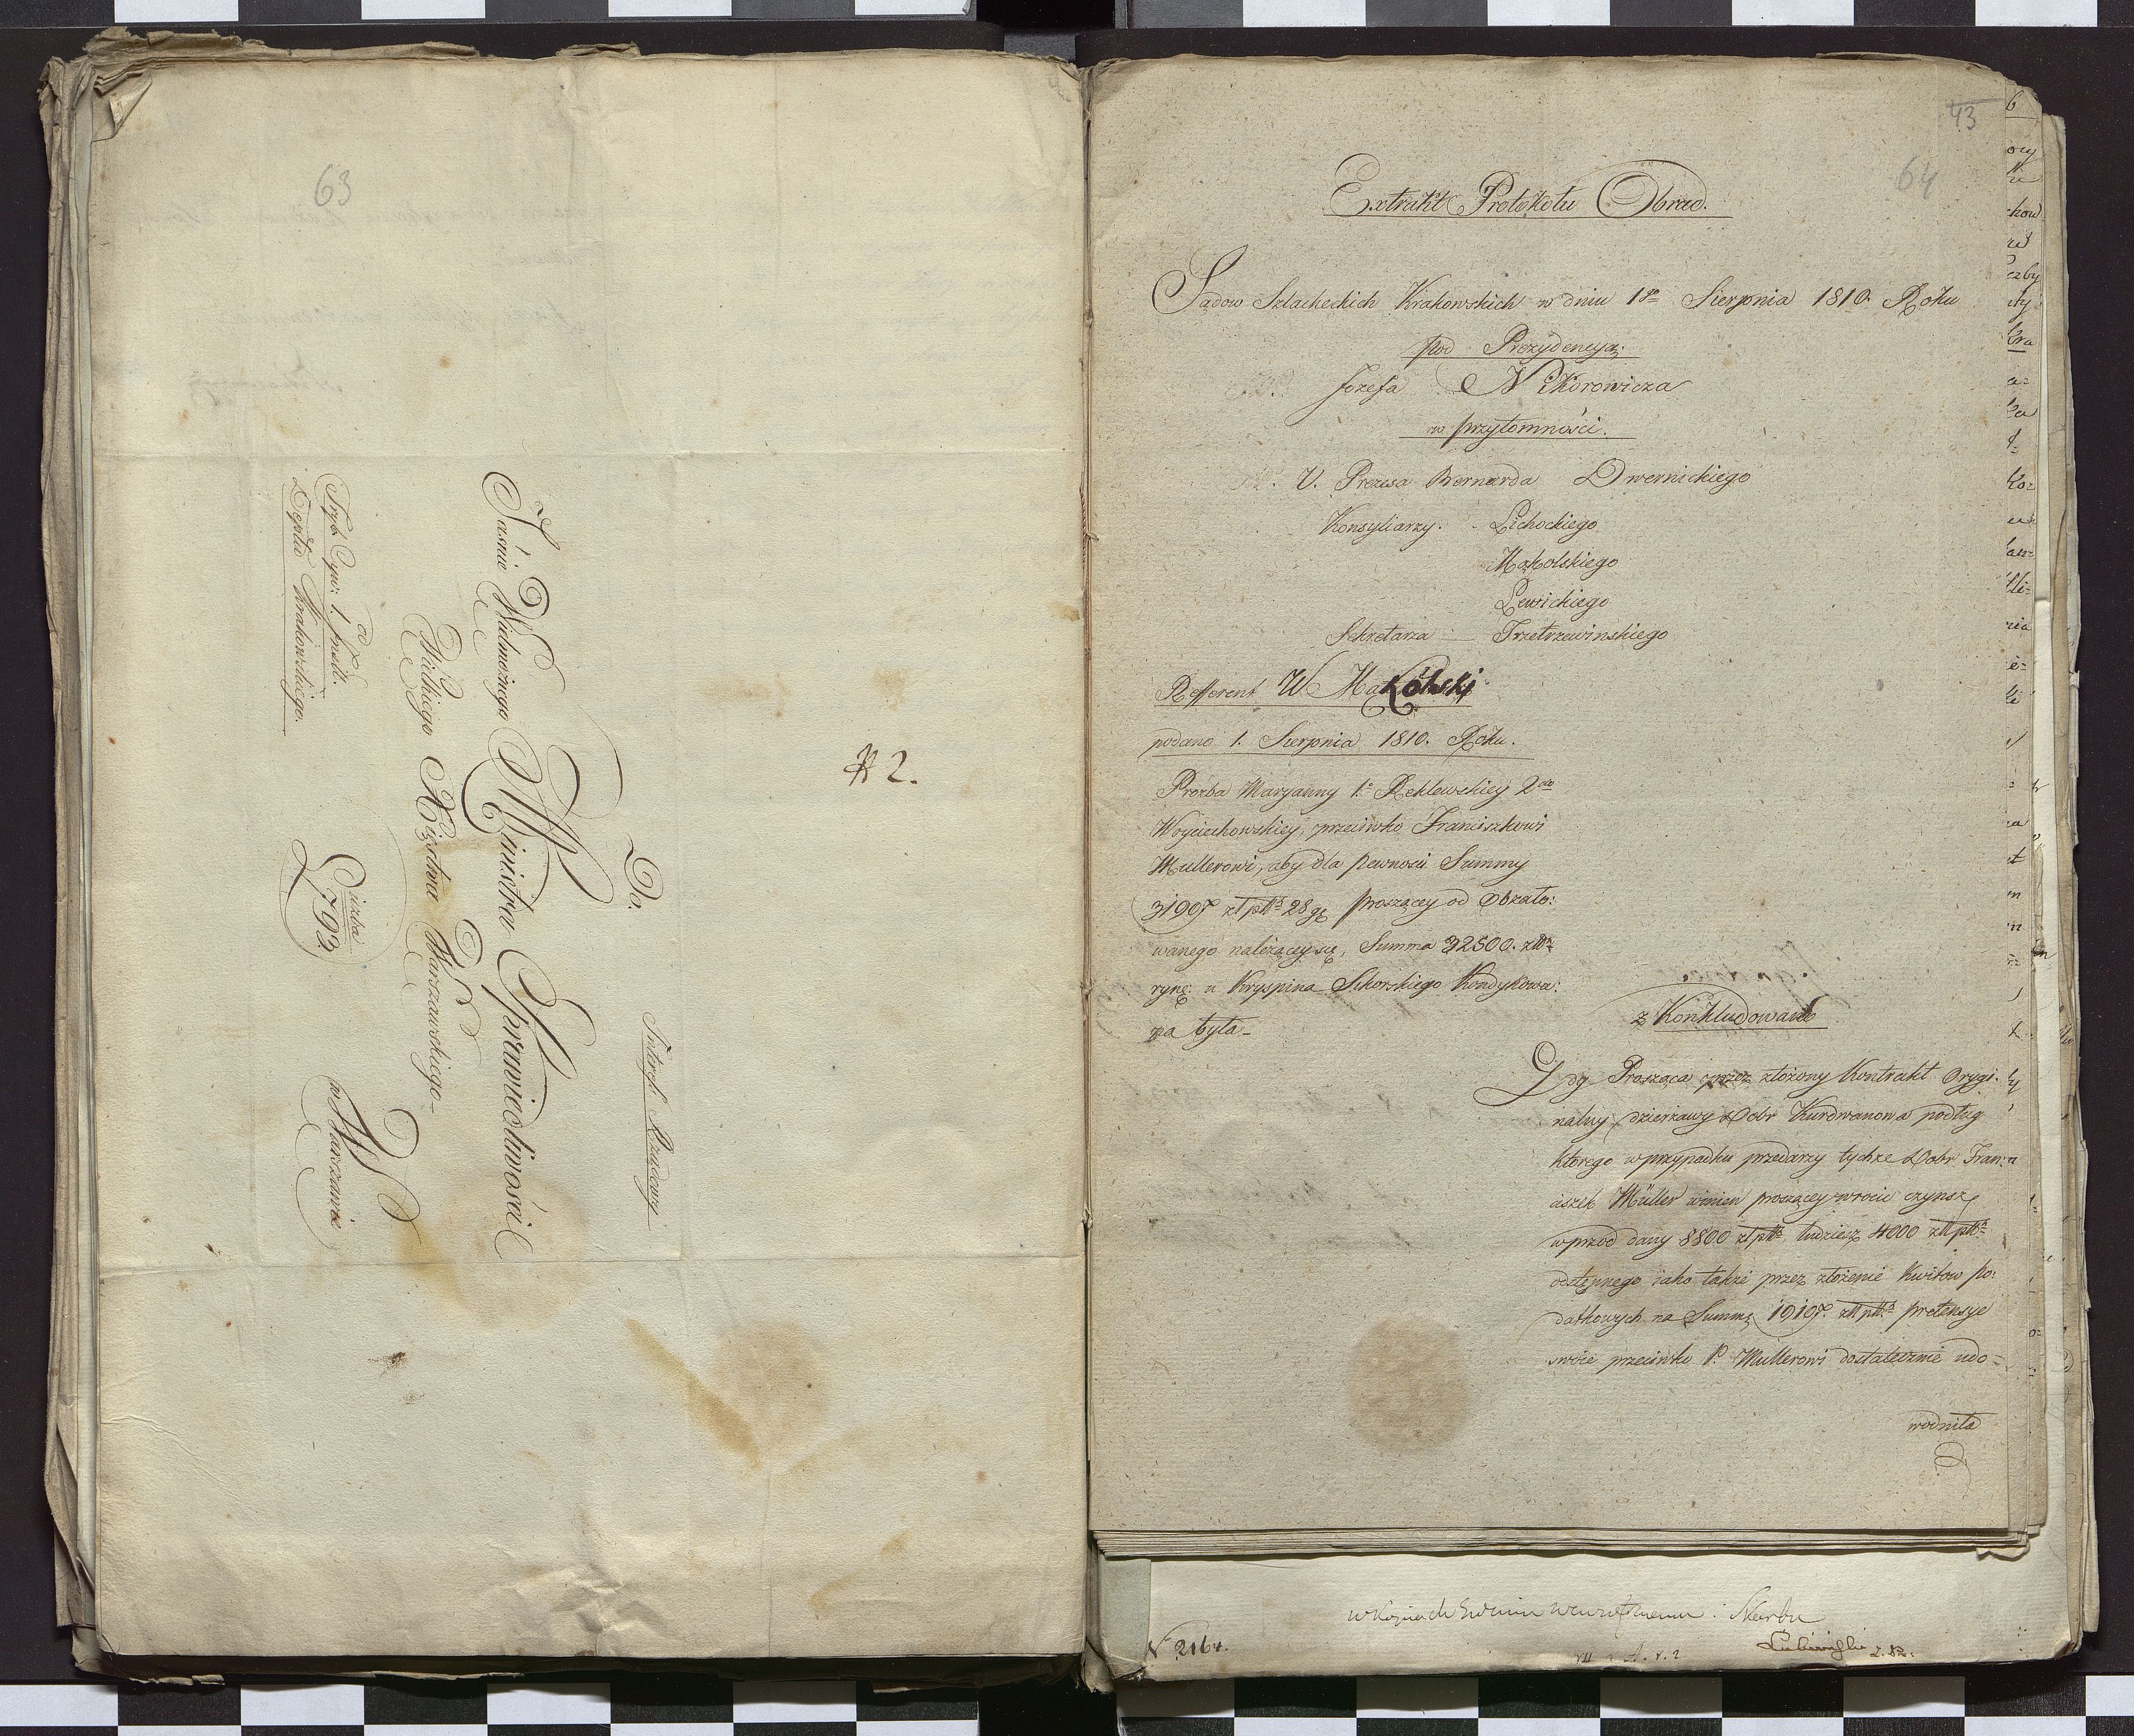 63
# 2.
Do.
Interes. Rządowy
J. W
Jaśnie Wielmożnego Ministra Sprawiedliwości
Wielkiego Xięstwa Warszawskiego-
w Warszawie
od
Tryb. Cyw: 1. Inst.
Depttu Krakowskiego.
Liczba
1793.
43
64
Extrakt Protokułu Obrad.
Sądow Szlacheckich Krakowskich w dniu 1go Sierpnia 1810. Roku
pod Prezydencyą:
Jozefa Nikorowicza
w przytomności.
V. Prezesa Bernarda Dwernickiego
Konsyliarzy. Lichockiego
Mąkolskiego
Lewickiego
Sekretarza — Trzetrzewinskiego
Refferent W Mąkolski
podano 1. Sierpnia 1810. Roku.
Proźba Maryanny 1o Reklewskiey 2do
Woyciechowskiey, przeciwko Franciszkowi
Mullerowi, aby dla pewności Summy
31907 zł pls 28 g proszącey od Obzało:
wanego należącey się, Summa 32500. złł
rynę: u Kryspina Sikorskiego Kondykowa:
na była-
z Konkludowano
Gdy Prosząca przez złożony Kontrakt Orygi:
nalny dzierżawy Dobr Kurdwanowa podług
ktorego w przypadku przedarzy tychże Dobr Fran:
ciszek Müller winien proszącey wrocić czynsz
wprzod dany 8800 zł pls tudziesz 4000 złł pls
odstępnego iako także przez złożenie Kwitow po:
datkowych na Summę 19107. złł pls pretensye
swoie przeciwko P. Mullerowi dostatecznie udo=
wodniła
N 2164.
Skarbu